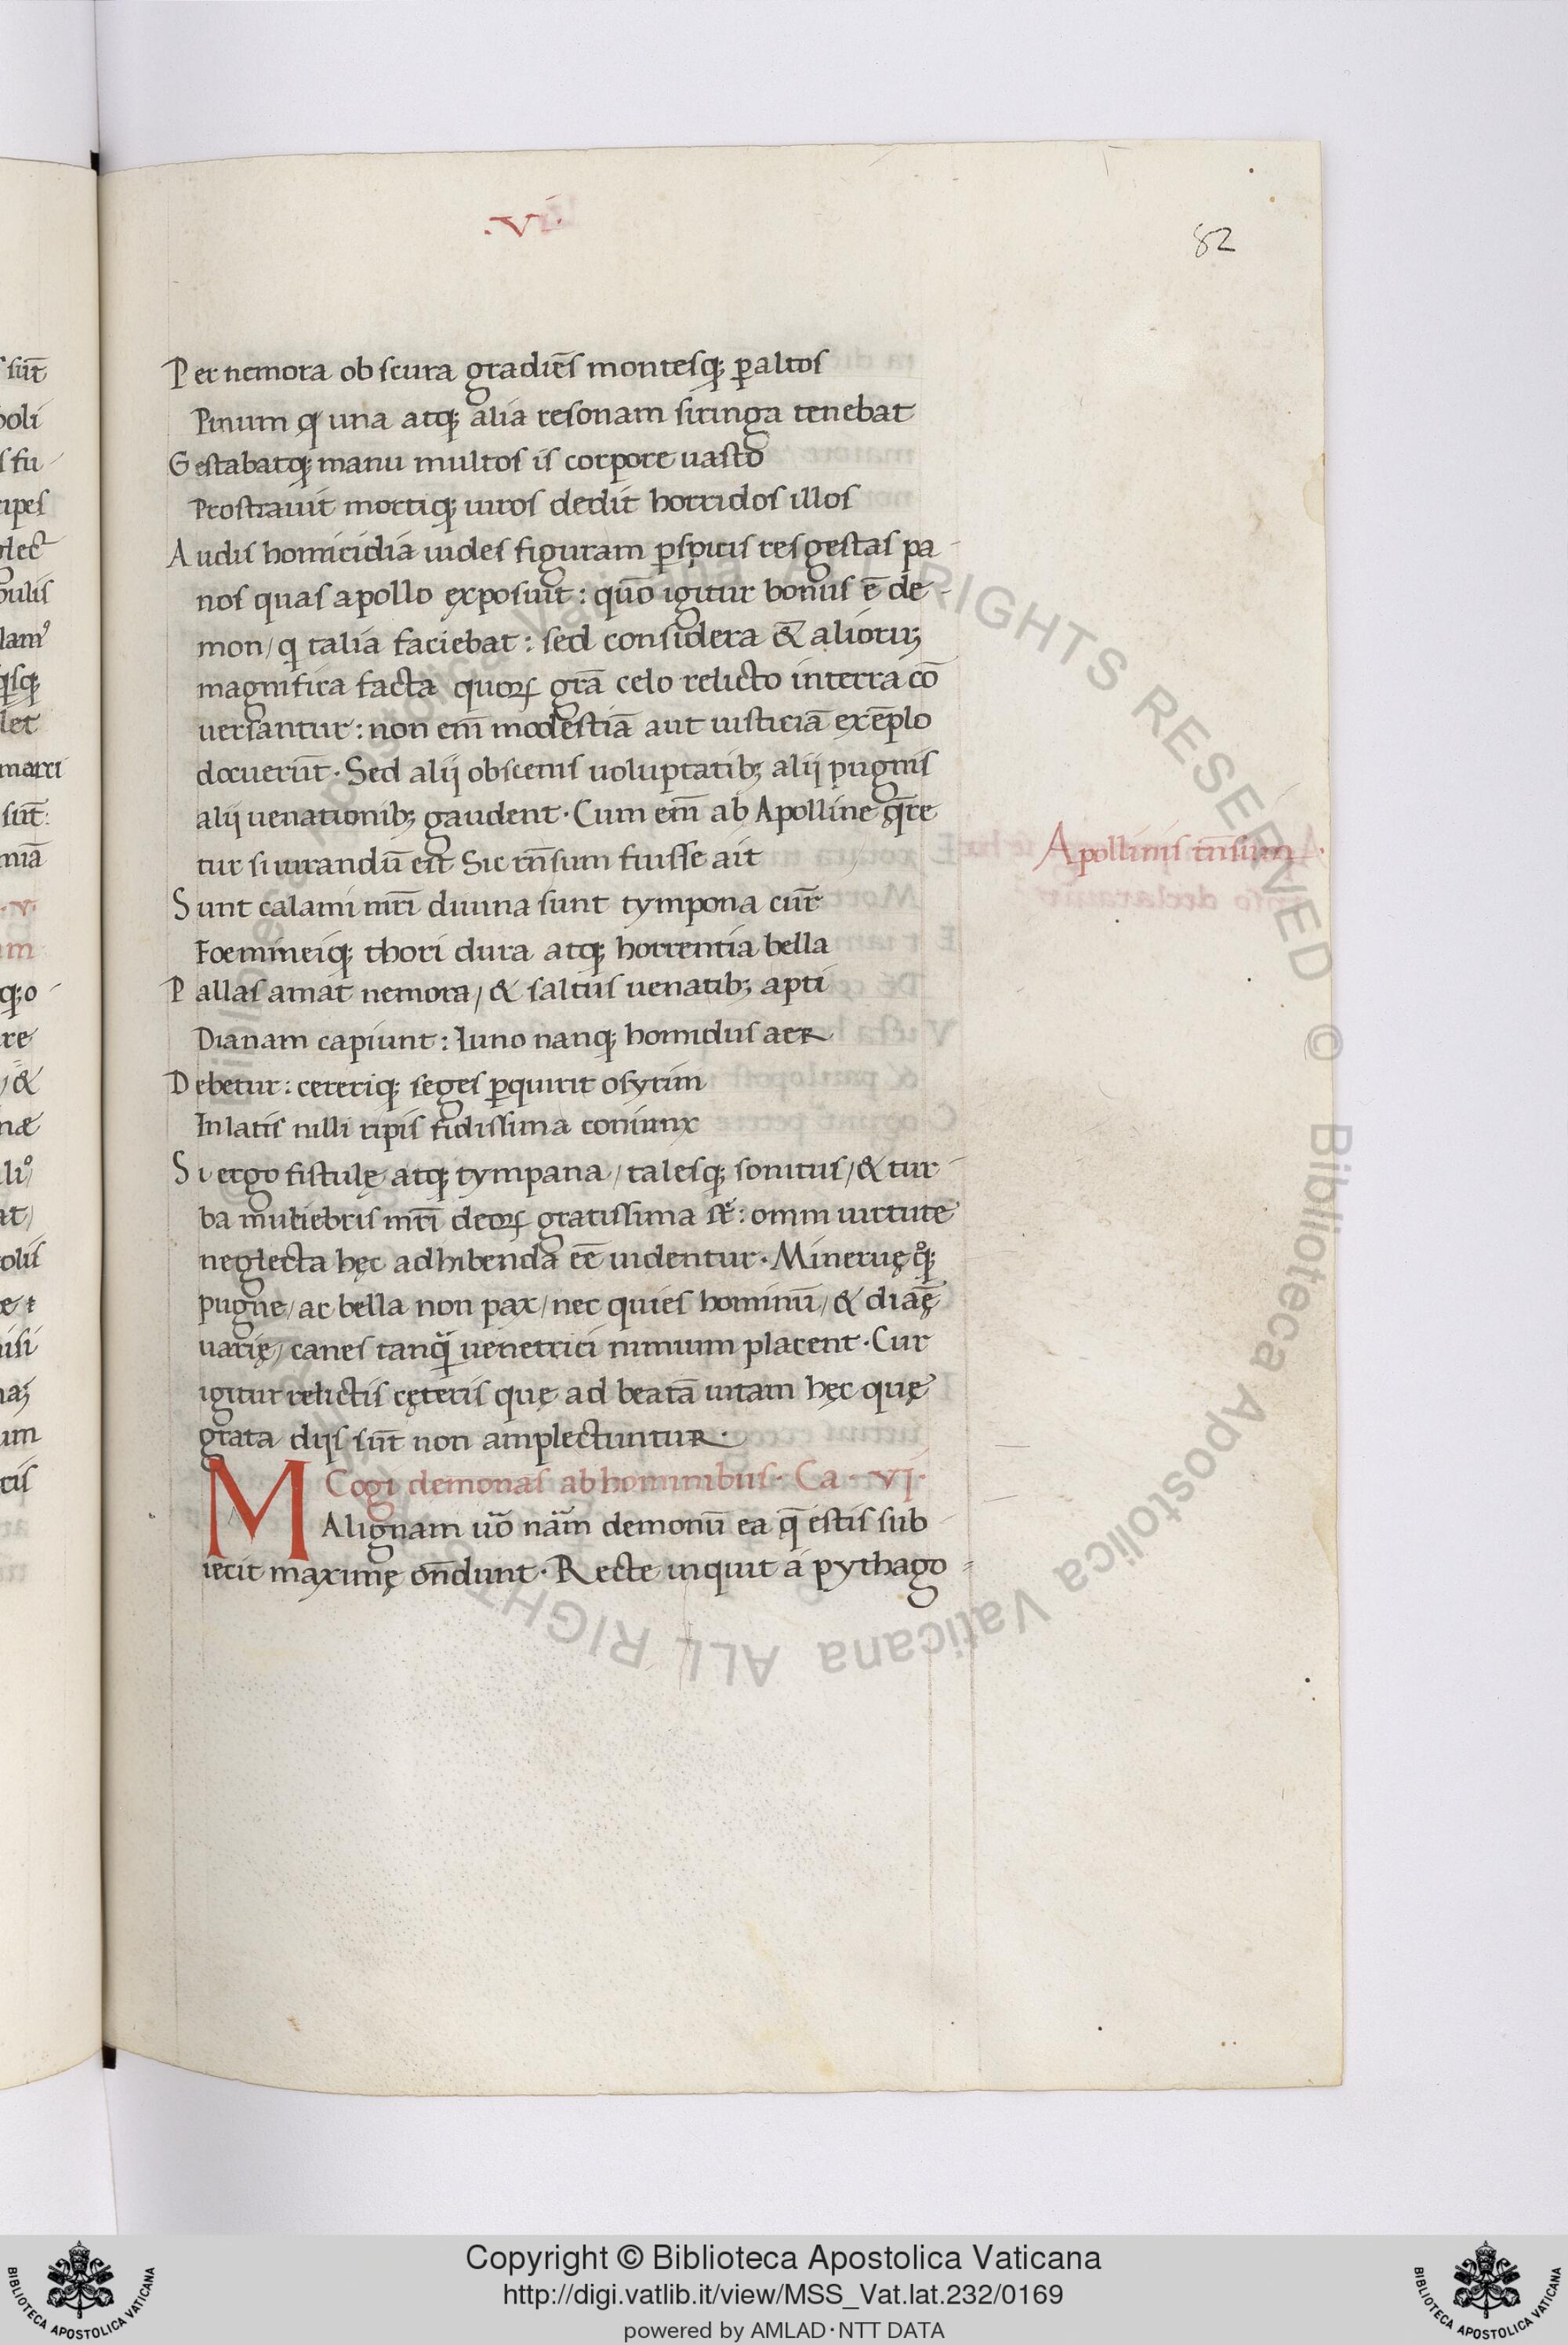 .VI.
82
Per nemora obscura gradiēs montesq; ꝑ altos
Pinum q̨ una atq; alia resonam siringa tenebat
Gestabatq; manu multos is corpore uasto
Prostrauit mortiq; uiros dedit horridos illos
Audis homicidia uides figuram ꝑspicis res gestas pa-
nos quas apollo exposuit: quō igitur bonus ē de-
mon/ qi talia faciebat: sed considera & aliorū;
magnifica facta quoꝝ grā celo relicto in terra cō
uersantur: non em̄ modestiā aut iusticiā exēplo
docuerūt. Sed alij obscenis uoluptatib; alij pugnis
alij uenationib; gaudent. Cum em̄ ab Apolline q̄re
tur si iurandū eit Sic rn̄sum fuisse ait
Apollinis rn̄sum
Sunt calami mr̄i diuina sunt tympona cur̄
Foemineiq; thori dura atq; horrentia bella
Pallas amat nemora/ & saltus uenatib; apti
Dianam capiunt: Iuno nanq; homidus aer
Debetur: cereriq; seges ꝑquirit osyrim
In latis nilli ripis fidissima coniunx
Si ergo fistulę atq; tympana/ talesq; sonitus/ & tur-
ba muliebris mr̄i deoꝝ gratissima st̄: omni uirtute
neglecta hęc adhibenda eē uidentur. Mineruę qͦ;
pugne/ ac bella non pax/ nec quies hominū/ & diāę
uarię/ canes tanq̄ uenetrici nimium placent. Cur
igitur relictis cęteris quę ad beatā uitam hęc quę
grata dijs sūt non amplectuntur.
Cogi demonas ab hominibus. Ca. VI.
MAlignam uō nām demonū ea q̄ estis sub-
iecit maximę on̄dunt. Recte inquit a pythago-
Copyright © Biblioteca Apostolica Vaticana
http://digi.vatlib.it/view/MSS_Vat.lat.232/0169
powered by AMLAD·NTT DATA